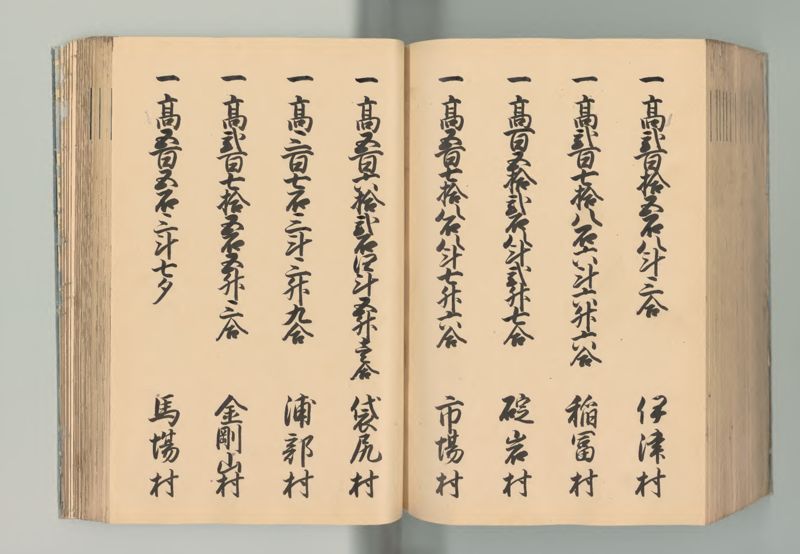 一 高弐百拾五石八斗三合 伊津村
一 高弐百七拾八石六斗六升六合 稲冨村
一 高百五拾弐石八斗弐升七合 碇岩村
一 高五百七拾八石八斗七升六合 市場村
一 高五百六拾弐石四斗五升壱合 袋尻村
一 高三百七石三斗三升九合 浦部村
一 高弐百七拾五石五升三合 金剛山村
一 高五百五石三斗七夕 馬場村